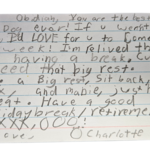 Obviosly, You are the best
Dog ever! If u want
I'd LOVE for u to come
week! I'm relived th
having a break. Cu
eed that big rest.
a Big rest, sit back,
x, and maybe, just
eat. Have a good
iday break/retirement
XXX, OOO!
ove, Charlotte